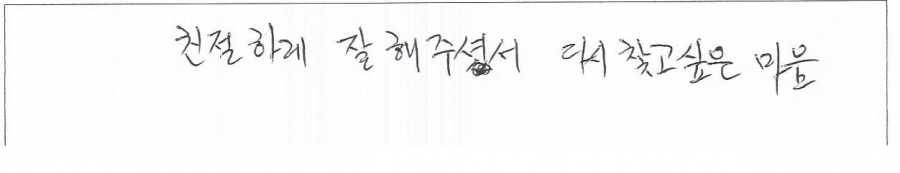 친절하게 잘 해주셨서 다시 찾고싶은 마음